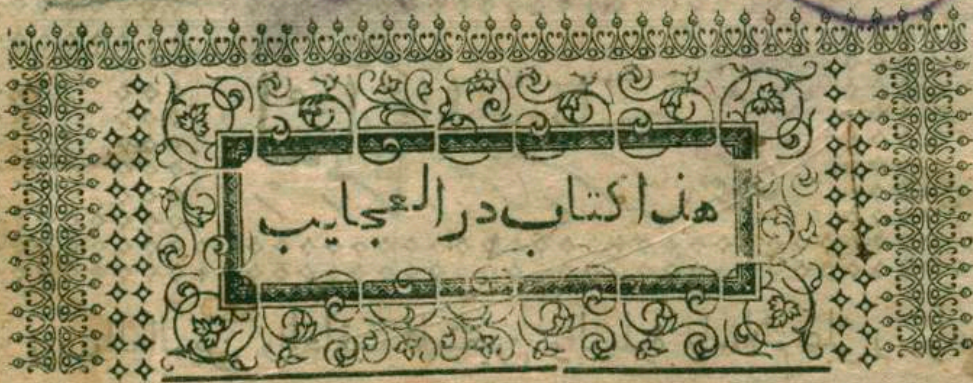 هذا كتاب در العجايب